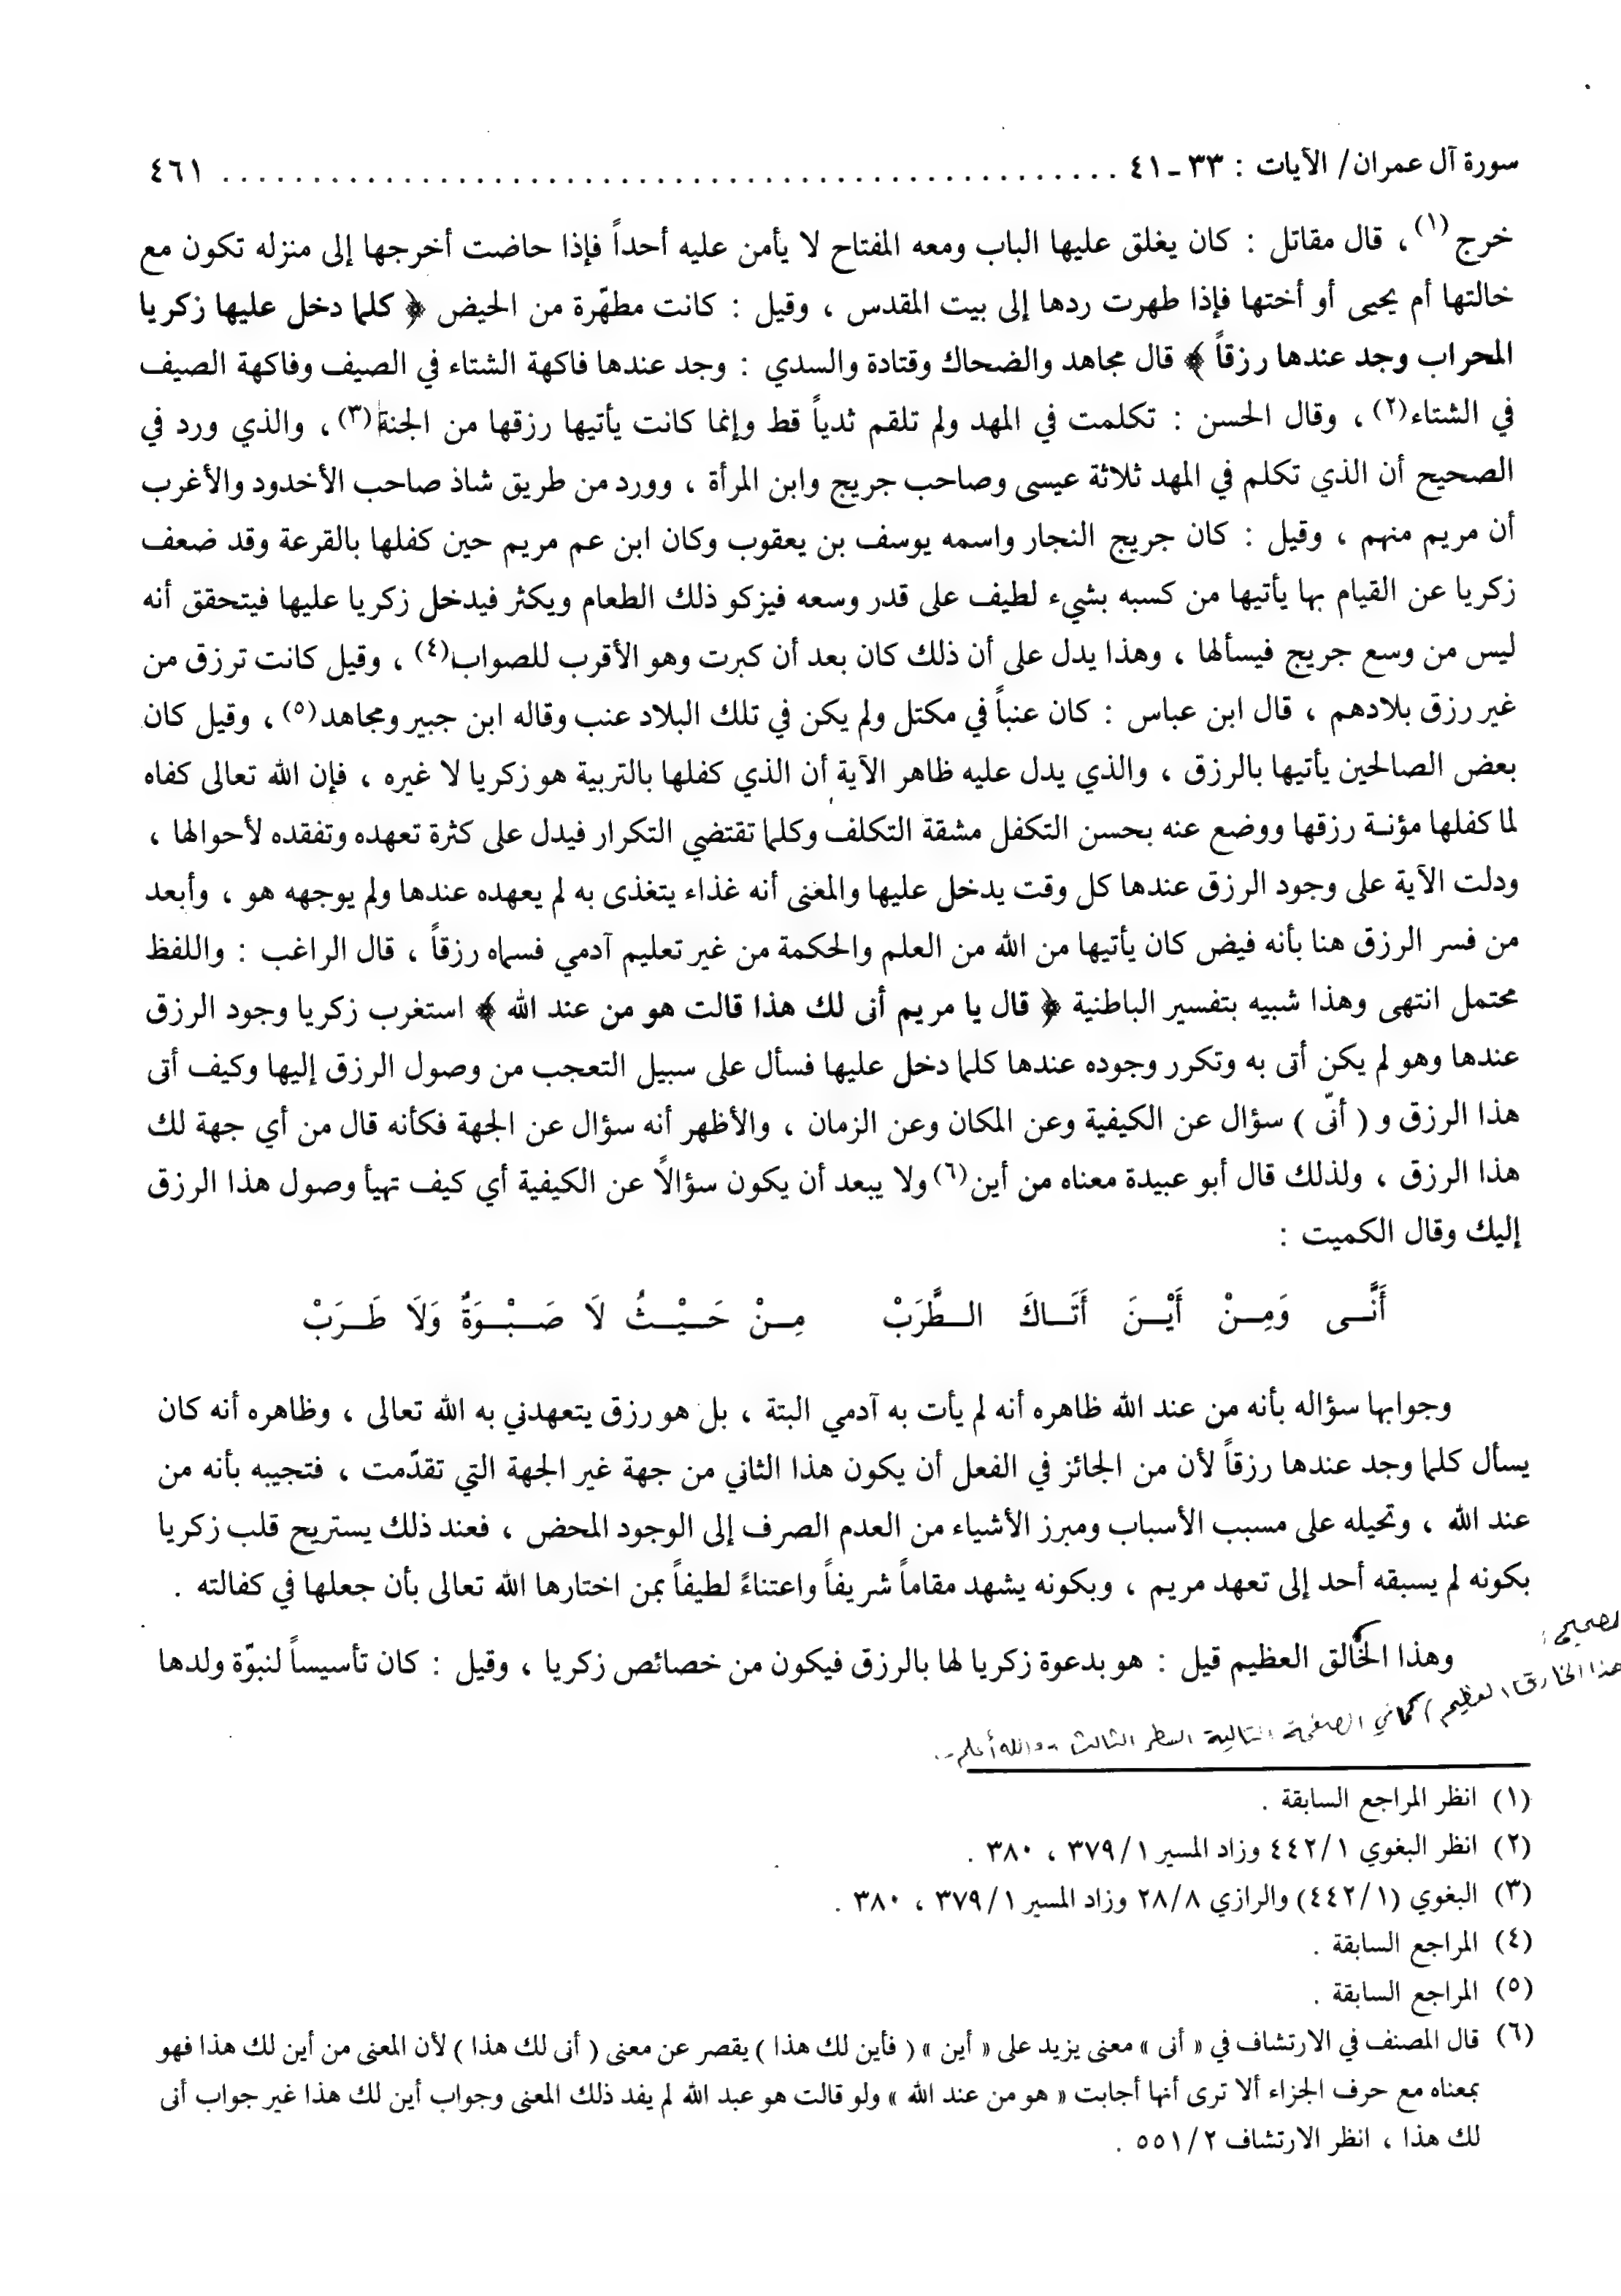 سورة آل عمران/ الآيات : ٣٣ـ٤١ . . . . . . . . . . . . . . . . . . . . . . . . . . . . . . . . . . . . . ٤٦١
خرج(١) ، قال مقاتل : كان يغلق عليها الباب ومعه المفتاح لا يأمن عليه أحداً فإذا حاضت أخرجها إلى منزله تكون مع
خالتها أم يحيى أو أختها فإذا طهرت ردها إلى بيت المقدس ، وقيل : كانت مطهّرة من الحيض ﴿ كلما دخل عليها زكريا
المحراب وجد عندها رزقاً ﴾ قال مجاهد والضحاك وقتادة والسدي : وجد عندها فاكهة الشتاء في الصيف وفاكهة الصيف
في الشتاء(٢) ، وقال الحسن : تكلمت في المهد ولم تلقم ثدياً قط وإنما كانت يأتيها رزقها من الجنة(٣) ، والذي ورد في
الصحيح أن الذي تكلم في المهد ثلاثة عيسى وصاحب جريج وابن المرأة ، وورد من طريق شاذ صاحب الأخدود والأغرب
أن مريم منهم ، وقيل : كان جريج النجار واسمه يوسف بن يعقوب وكان ابن عم مريم حين كفلها بالقرعة وقد ضعف
زكريا عن القيام بها يأتيها من كسبه بشيء لطيف على قدر وسعه فيزكو ذلك الطعام ويكثر فيدخل زكريا عليها فيتحقق أنه
ليس من وسع جريج فيسألها ، وهذا يدل على أن ذلك كان بعد أن كبرت وهو الأقرب للصواب(٤) ، وقيل كانت ترزق من
غير رزق بلادهم ، قال ابن عباس : كان عنباً في مكتل ولم يكن في تلك البلاد عنب وقاله ابن جبير ومجاهد(٥) ، وقيل كان
بعض الصالحين يأتيها بالرزق ، والذي يدل عليه ظاهر الآية أن الذي كفلها بالتربية هو زكريا لا غيره ، فإن الله تعالى كفاه
لما كفلها مؤنـة رزقها ووضع عنه بحسن التكفل مشقة التكلف وكلما تقتضي التكرار فيدل على كثرة تعهده وتفقده لأحوالها ،
ودلت الآية على وجود الرزق عندها كل وقت يدخل عليها والمعنى أنه غذاء يتغذى به لم يعهده عندها ولم يوجهه هو ، وأبعد
من فسر الرزق هنا بأنه فيض كان يأتيها من الله من العلم والحكمة من غير تعليم آدمي فسماه رزقاً ، قال الراغب : واللفظ
محتمل انتهى وهذا شبيه بتفسير الباطنية ﴿ قال يا مريم أنى لك هذا قالت هو من عند الله ﴾ استغرب زكريا وجود الرزق
عندها وهو لم يكن أتى به وتكرر وجوده عندها كلما دخل عليها فسأل على سبيل التعجب من وصول الرزق إليها وكيف أتى
هذا الرزق و ( أنّى ) سؤال عن الكيفية وعن المكان وعن الزمان ، والأظهر أنه سؤال عن الجهة فكأنه قال من أي جهة لك
هذا الرزق ، ولذلك قال أبو عبيدة معناه من أين(٦) ولا يبعد أن يكون سؤالاً عن الكيفية أي كيف تهيأ وصول هذا الرزق
إليك وقال الكميت :
أَنَّــى وَمِــنْ أَيْــنَ أَتَــاكَ الــطَّرَبْ مِــنْ حَــيْــثُ لَا صَــبْــوَةٌ وَلَا طَــرَبْ
وجوابها سؤاله بأنه من عند الله ظاهره أنه لم يأت به آدمي البتة ، بل هو رزق يتعهدني به الله تعالى ، وظاهره أنه كان
يسأل كلما وجد عندها رزقاً لأن من الجائز في الفعل أن يكون هذا الثاني من جهة غير الجهة التي تقدّمت ، فتجيبه بأنه من
عند الله ، وتحيله على مسبب الأسباب ومبرز الأشياء من العدم الصرف إلى الوجود المحض ، فعند ذلك يستريح قلب زكريا
بكونه لم يسبقه أحد إلى تعهد مريم ، وبكونه يشهد مقاماً شريفاً واعتناءً لطيفاً بمن اختارها الله تعالى بأن جعلها في كفالته .
وهذا الخالق العظيم قيل : هو بدعوة زكريا لها بالرزق فيكون من خصائص زكريا ، وقيل : كان تأسيساً لنبوّة ولدها
لصحيح :
هذا الخارق العظيم / كما في الصفحة التالية السطر الثالث -والله أعلم-.
(١) انظر المراجع السابقة .
(٢) انظر البغوي ٤٤٢/١ وزاد المسير ٣٧٩/١ ، ٣٨٠ .
(٣) البغوي (٤٤٢/١) والرازي ٢٨/٨ وزاد المسير ٣٧٩/١ ، ٣٨٠ .
(٤) المراجع السابقة .
(٥) المراجع السابقة .
(٦) قال المصنف في الارتشاف في « أنى » معنى يزيد على « أين » ( فأين لك هذا ) يقصر عن معنى ( أنى لك هذا ) لأن المعنى من أين لك هذا فهو
بمعناه مع حرف الجزاء ألا ترى أنها أجابت « هو من عند الله » ولو قالت هو عبد الله لم يفد ذلك المعنى وجواب أين لك هذا غير جواب أنى
لك هذا ، انظر الارتشاف ٥٥١/٢ .